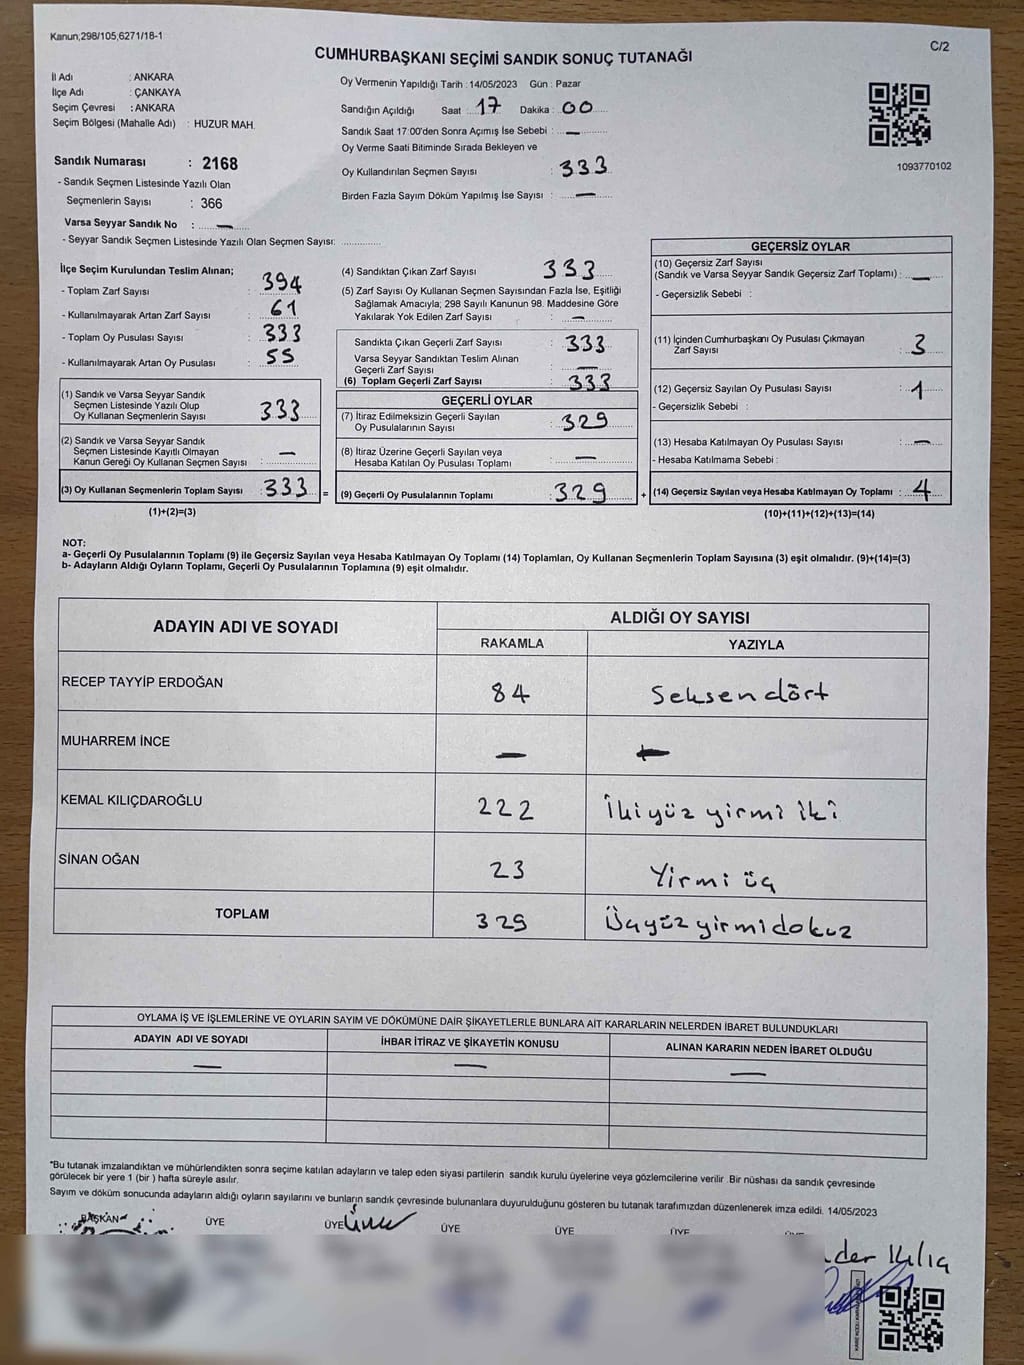 Kanun,298/105,6271/18-1
C/2
CUMHURBAŞKANI SEÇİMİ SANDIK SONUÇ TUTANAĞI
İl Adı : ANKARA
İlçe Adı : ÇANKAYA
Seçim Çevresi : ANKARA
Seçim Bölgesi (Mahalle Adı) : HUZUR MAH.
Oy Vermenin Yapıldığı Tarih : 14/05/2023 Gün : Pazar
Sandığın Açıldığı Saat : 17 Dakika : 00
Sandık Saat 17:00'den Sonra Açımış İse Sebebi : —
Oy Verme Saati Bitiminde Sırada Bekleyen ve
Oy Kullandırılan Seçmen Sayısı : 333
Birden Fazla Sayım Döküm Yapılmış İse Sayısı : —
1093770102
Sandık Numarası : 2168
- Sandık Seçmen Listesinde Yazılı Olan
Seçmenlerin Sayısı : 366
Varsa Seyyar Sandık No : —
- Seyyar Sandık Seçmen Listesinde Yazılı Olan Seçmen Sayısı:
İlçe Seçim Kurulundan Teslim Alınan;
- Toplam Zarf Sayısı : 394
- Kullanılmayarak Artan Zarf Sayısı : 61
- Toplam Oy Pusulası Sayısı : 333
- Kullanılmayarak Artan Oy Pusulası : 55
(1) Sandık ve Varsa Seyyar Sandık
Seçmen Listesinde Yazılı Olup
Oy Kullanan Seçmenlerin Sayısı : 333
(2) Sandık ve Varsa Seyyar Sandık
Seçmen Listesinde Kayıtlı Olmayan
Kanun Gereği Oy Kullanan Seçmen Sayısı : —
(3) Oy Kullanan Seçmenlerin Toplam Sayısı : 333 =
(1)+(2)=(3)
(4) Sandıktan Çıkan Zarf Sayısı : 333
(5) Zarf Sayısı Oy Kullanan Seçmen Sayısından Fazla İse, Eşitliği
Sağlamak Amacıyla; 298 Sayılı Kanunun 98. Maddesine Göre
Yakılarak Yok Edilen Zarf Sayısı : —
Sandıkta Çıkan Geçerli Zarf Sayısı : 333
Varsa Seyyar Sandıktan Teslim Alınan
Geçerli Zarf Sayısı : —
(6) Toplam Geçerli Zarf Sayısı : 333
GEÇERLİ OYLAR
(7) İtiraz Edilmeksizin Geçerli Sayılan
Oy Pusulalarının Sayısı : 329
(8) İtiraz Üzerine Geçerli Sayılan veya
Hesaba Katılan Oy Pusulası Toplamı : —
(9) Geçerli Oy Pusulalarının Toplamı : 329 +
GEÇERSİZ OYLAR
(10) Geçersiz Zarf Sayısı
(Sandık ve Varsa Seyyar Sandık Geçersiz Zarf Toplamı) : —
- Geçersizlik Sebebi :
(11) İçinden Cumhurbaşkanı Oy Pusulası Çıkmayan
Zarf Sayısı : 3
(12) Geçersiz Sayılan Oy Pusulası Sayısı : 1
- Geçersizlik Sebebi :
(13) Hesaba Katılmayan Oy Pusulası Sayısı : —
- Hesaba Katılmama Sebebi :
(14) Geçersiz Sayılan veya Hesaba Katılmayan Oy Toplamı : 4
(10)+(11)+(12)+(13)=(14)
NOT:
a- Geçerli Oy Pusulalarının Toplamı (9) ile Geçersiz Sayılan veya Hesaba Katılmayan Oy Toplamı (14) Toplamları, Oy Kullanan Seçmenlerin Toplam Sayısına (3) eşit olmalıdır. (9)+(14)=(3)
b- Adayların Aldığı Oyların Toplamı, Geçerli Oy Pusulalarının Toplamına (9) eşit olmalıdır.
ADAYIN ADI VE SOYADI
ALDIĞI OY SAYISI
RAKAMLA YAZIYLA
RECEP TAYYİP ERDOĞAN 84 Seksen dört
MUHARREM İNCE — —
KEMAL KILIÇDAROĞLU 222 İkiyüz yirmi iki
SİNAN OĞAN 23 Yirmi üç
TOPLAM 329 Üçyüz yirmi dokuz
OYLAMA İŞ VE İŞLEMLERİNE VE OYLARIN SAYIM VE DÖKÜMÜNE DAİR ŞİKAYETLERLE BUNLARA AİT KARARLARIN NELERDEN İBARET BULUNDUKLARI
ADAYIN ADI VE SOYADI İHBAR İTİRAZ VE ŞİKAYETİN KONUSU ALINAN KARARIN NEDEN İBARET OLDUĞU
— — —
*Bu tutanak imzalandıktan ve mühürlendikten sonra seçime katılan adayların ve talep eden siyasi partilerin sandık kurulu üyelerine veya gözlemcilerine verilir. Bir nüshası da sandık çevresinde
görülecek bir yere 1 (bir ) hafta süreyle asılır.
Sayım ve döküm sonucunda adayların aldığı oyların sayılarını ve bunların sandık çevresinde bulunanlara duyurulduğunu gösteren bu tutanak tarafımızdan düzenlenerek imza edildi. 14/05/2023
BAŞKAN ÜYE ÜYE ÜYE ÜYE ÜYE ÜYE
Kılıç